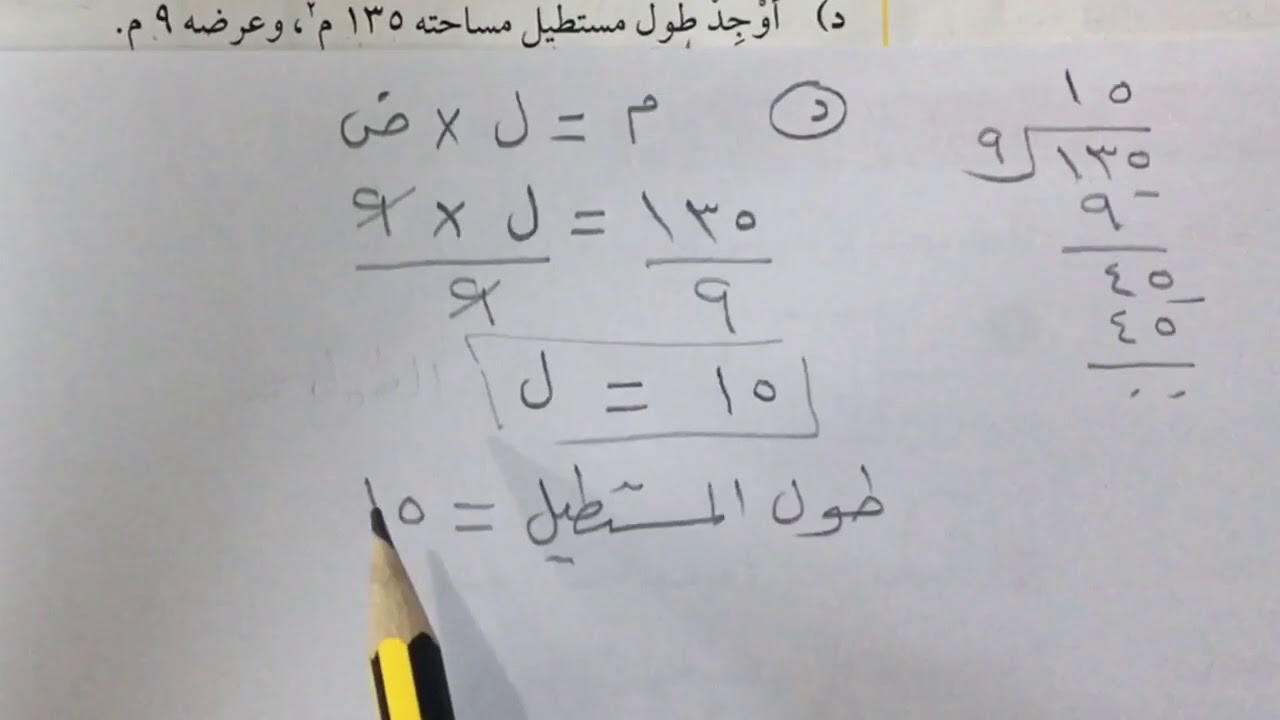 د) أَوْجِدْ طول مستطيل مساحته ١٣٥ م٢، وعرضه ٩ م.
د
م = ل × ض
١٣٥ = ل × ٩
٩ ٩
١٥ = ل
طول المستطيل = ١٥
١٥
٩ ١٣٥
٩ -
٤٥
٤٥ -
٠٠